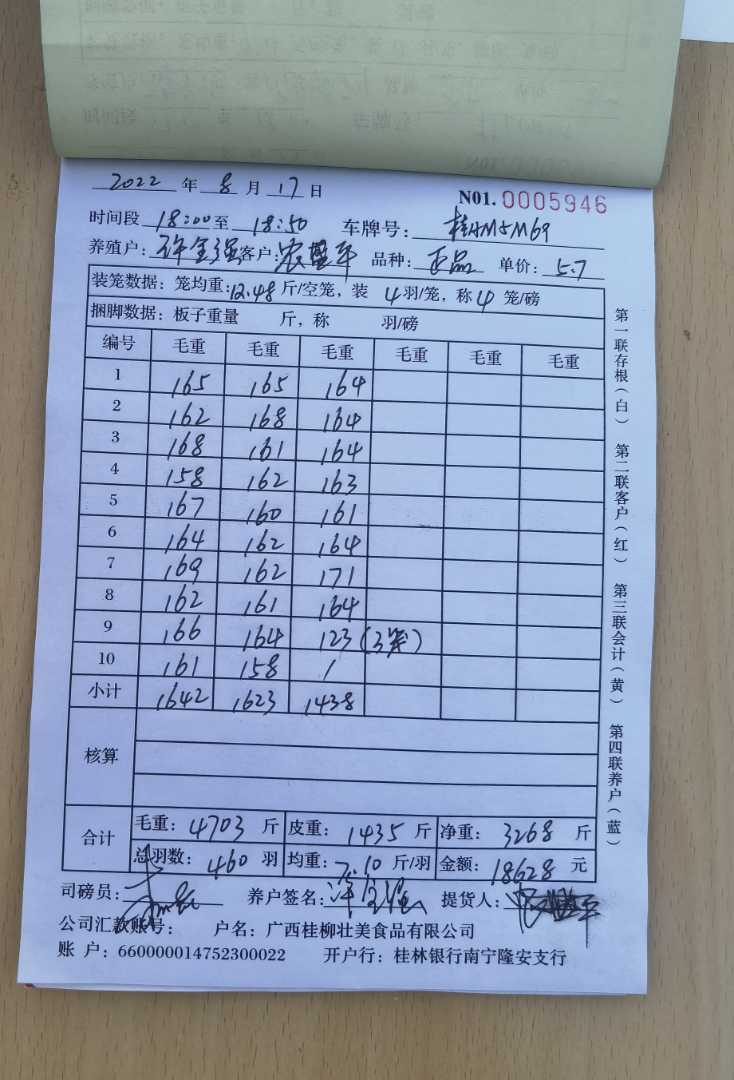 2022 年 8 月 17 日 N01. 0005946
时间段 18:00 至 18:50 车牌号: 桂AM5M69
养殖户: 许全强 客户: 农盛平 品种: 正品 单价: 5.7
装笼数据: 笼均重: 12.48 斤/空笼, 装 4 羽/笼, 称 4 笼/磅
捆脚数据: 板子重量 斤, 称 羽/磅
编号 毛重 毛重 毛重 毛重 毛重 毛重
1 165 165 164
2 162 168 164
3 168 161 164
4 158 162 163
5 167 160 161
6 164 162 164
7 169 162 171
8 162 161 164
9 166 164 123 (3笼)
10 161 158 /
小计 1642 1623 1438
核算
合计 毛重: 4703 斤 皮重: 1435 斤 净重: 3268 斤
总羽数: 460 羽 均重: 7.10 斤/羽 金额: 18628 元
司磅员: 养户签名: 提货人:
公司汇款账号: 户名: 广西桂柳壮美食品有限公司
账 户: 660000014752300022 开户行: 桂林银行南宁隆安支行
第一联存根(白) 第二联客户(红) 第三联会计(黄) 第四联养户(蓝)